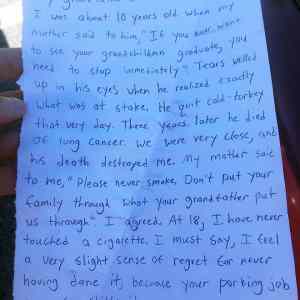 I was about 10 years old when my
mother said to him, "If you ever want
to see your grandchildren graduate, you
need to stop immediately." Tears welled
up in his eyes when he realized exactly
what was at stake. He quit cold-torkey
that very day. Three years later he died
of lung cancer. We were very close, and
his death destroyed me. My mother said
to me, "Please never smoke. Don't put your
family through what your grandfather put
us through" I agreed. At 18, I have never
touched a cigarette. I must say, I feel
a very slight sense of regret for never
having done it, because your parking job